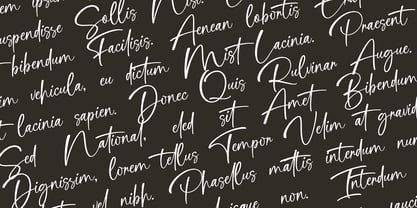 Sollis Nisi. Erat
suspendisse Facilisis. Aenean lobortis Praesent
bibendum dictum Mist Lacinia. Augue.
vehicula, eu Quis Pulvinar Bibendum
lacinia sapien. Donec sit Amet
National, eled Tempor Velim at gravida
Sed lorem tellus mattis interdum
Dignissim, Phasellus Interdum
vel nibh. non.